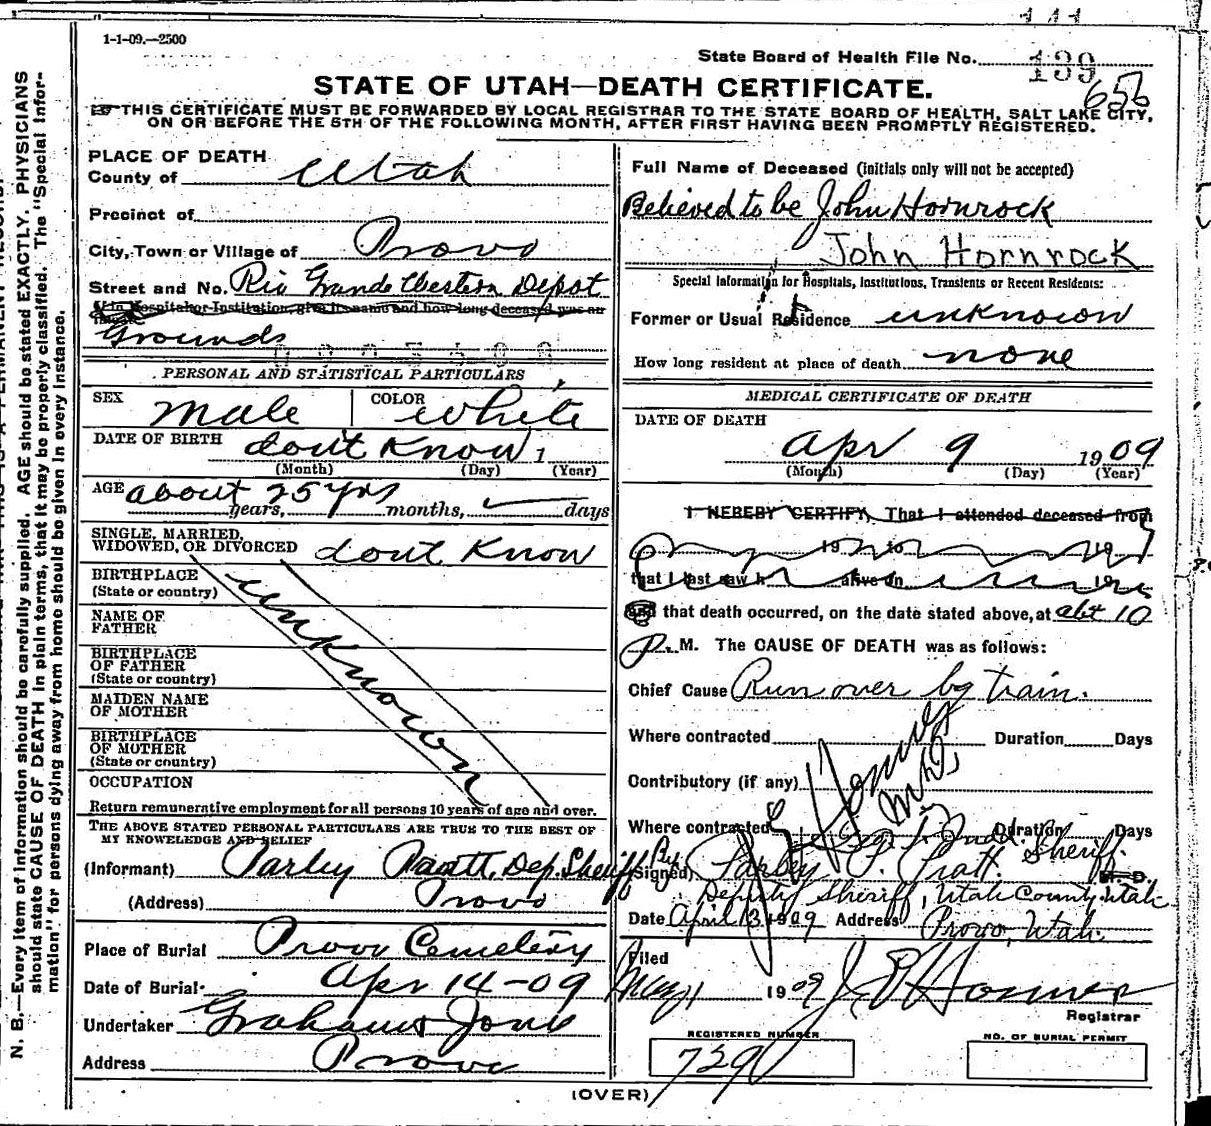 1-1-09.—2500
State Board of Health File No. 139
656
STATE OF UTAH—DEATH CERTIFICATE.
THIS CERTIFICATE MUST BE FORWARDED BY LOCAL REGISTRAR TO THE STATE BOARD OF HEALTH, SALT LAKE CITY,
ON OR BEFORE THE 5TH OF THE FOLLOWING MONTH, AFTER FIRST HAVING BEEN PROMPTLY REGISTERED.
N. B.—Every item of information should be carefully supplied. AGE should be stated EXACTLY. PHYSICIANS
should state CAUSE OF DEATH in plain terms, that it may be properly classified. The "Special Infor-
mation" for persons dying away from home should be given in every instance.
PLACE OF DEATH
County of Utah
Precinct of
City, Town or Village of Provo
Street and No. Rio Grande Western Depot
Hospital or Institution, give its name and how long deceased was an
Grounds
PERSONAL AND STATISTICAL PARTICULARS
SEX male COLOR white
DATE OF BIRTH dont Know 1
(Month) (Day) (Year)
AGE about 25 yrs
years, months, days
SINGLE, MARRIED,
WIDOWED, OR DIVORCED dont Know
BIRTHPLACE
(State or country)
unknown
NAME OF
FATHER
BIRTHPLACE
OF FATHER
(State or country)
MAIDEN NAME
OF MOTHER
BIRTHPLACE
OF MOTHER
(State or country)
OCCUPATION
Return remunerative employment for all persons 10 years of age and over.
THE ABOVE STATED PERSONAL PARTICULARS ARE TRUE TO THE BEST OF
MY KNOWLEDGE AND BELIEF
(Informant) Parley Pratt, Dep. Sheriff
(Address) Provo
Place of Burial Provo Cemetery
Date of Burial Apr 14-09
Undertaker Grahams Jons
Address Provo
Full Name of Deceased (initials only will not be accepted)
Believed to be John Hornrock
John Hornrock
Special Information for Hospitals, Institutions, Transients or Recent Residents:
Former or Usual Residence unknown
How long resident at place of death none
MEDICAL CERTIFICATE OF DEATH
DATE OF DEATH
Apr 9 1909
(Month) (Day) (Year)
I HEREBY CERTIFY, That I attended deceased from
19 to 19
that I last saw h alive on 19
and that death occurred, on the date stated above, at abt 10
P. M. The CAUSE OF DEATH was as follows:
Chief Cause Run over by train.
Where contracted Duration Days
Contributory (if any)
Where contracted Duration Days
Judd Sheriff.
By
(Signed) Parley P. Pratt. M. D.
Deputy Sheriff, Utah County Utah
Date April 13 1909 Address Provo, Utah.
Filed
May 1 1909 Horner
Registrar
REGISTERED NUMBER
NO. OF BURIAL PERMIT
(OVER)